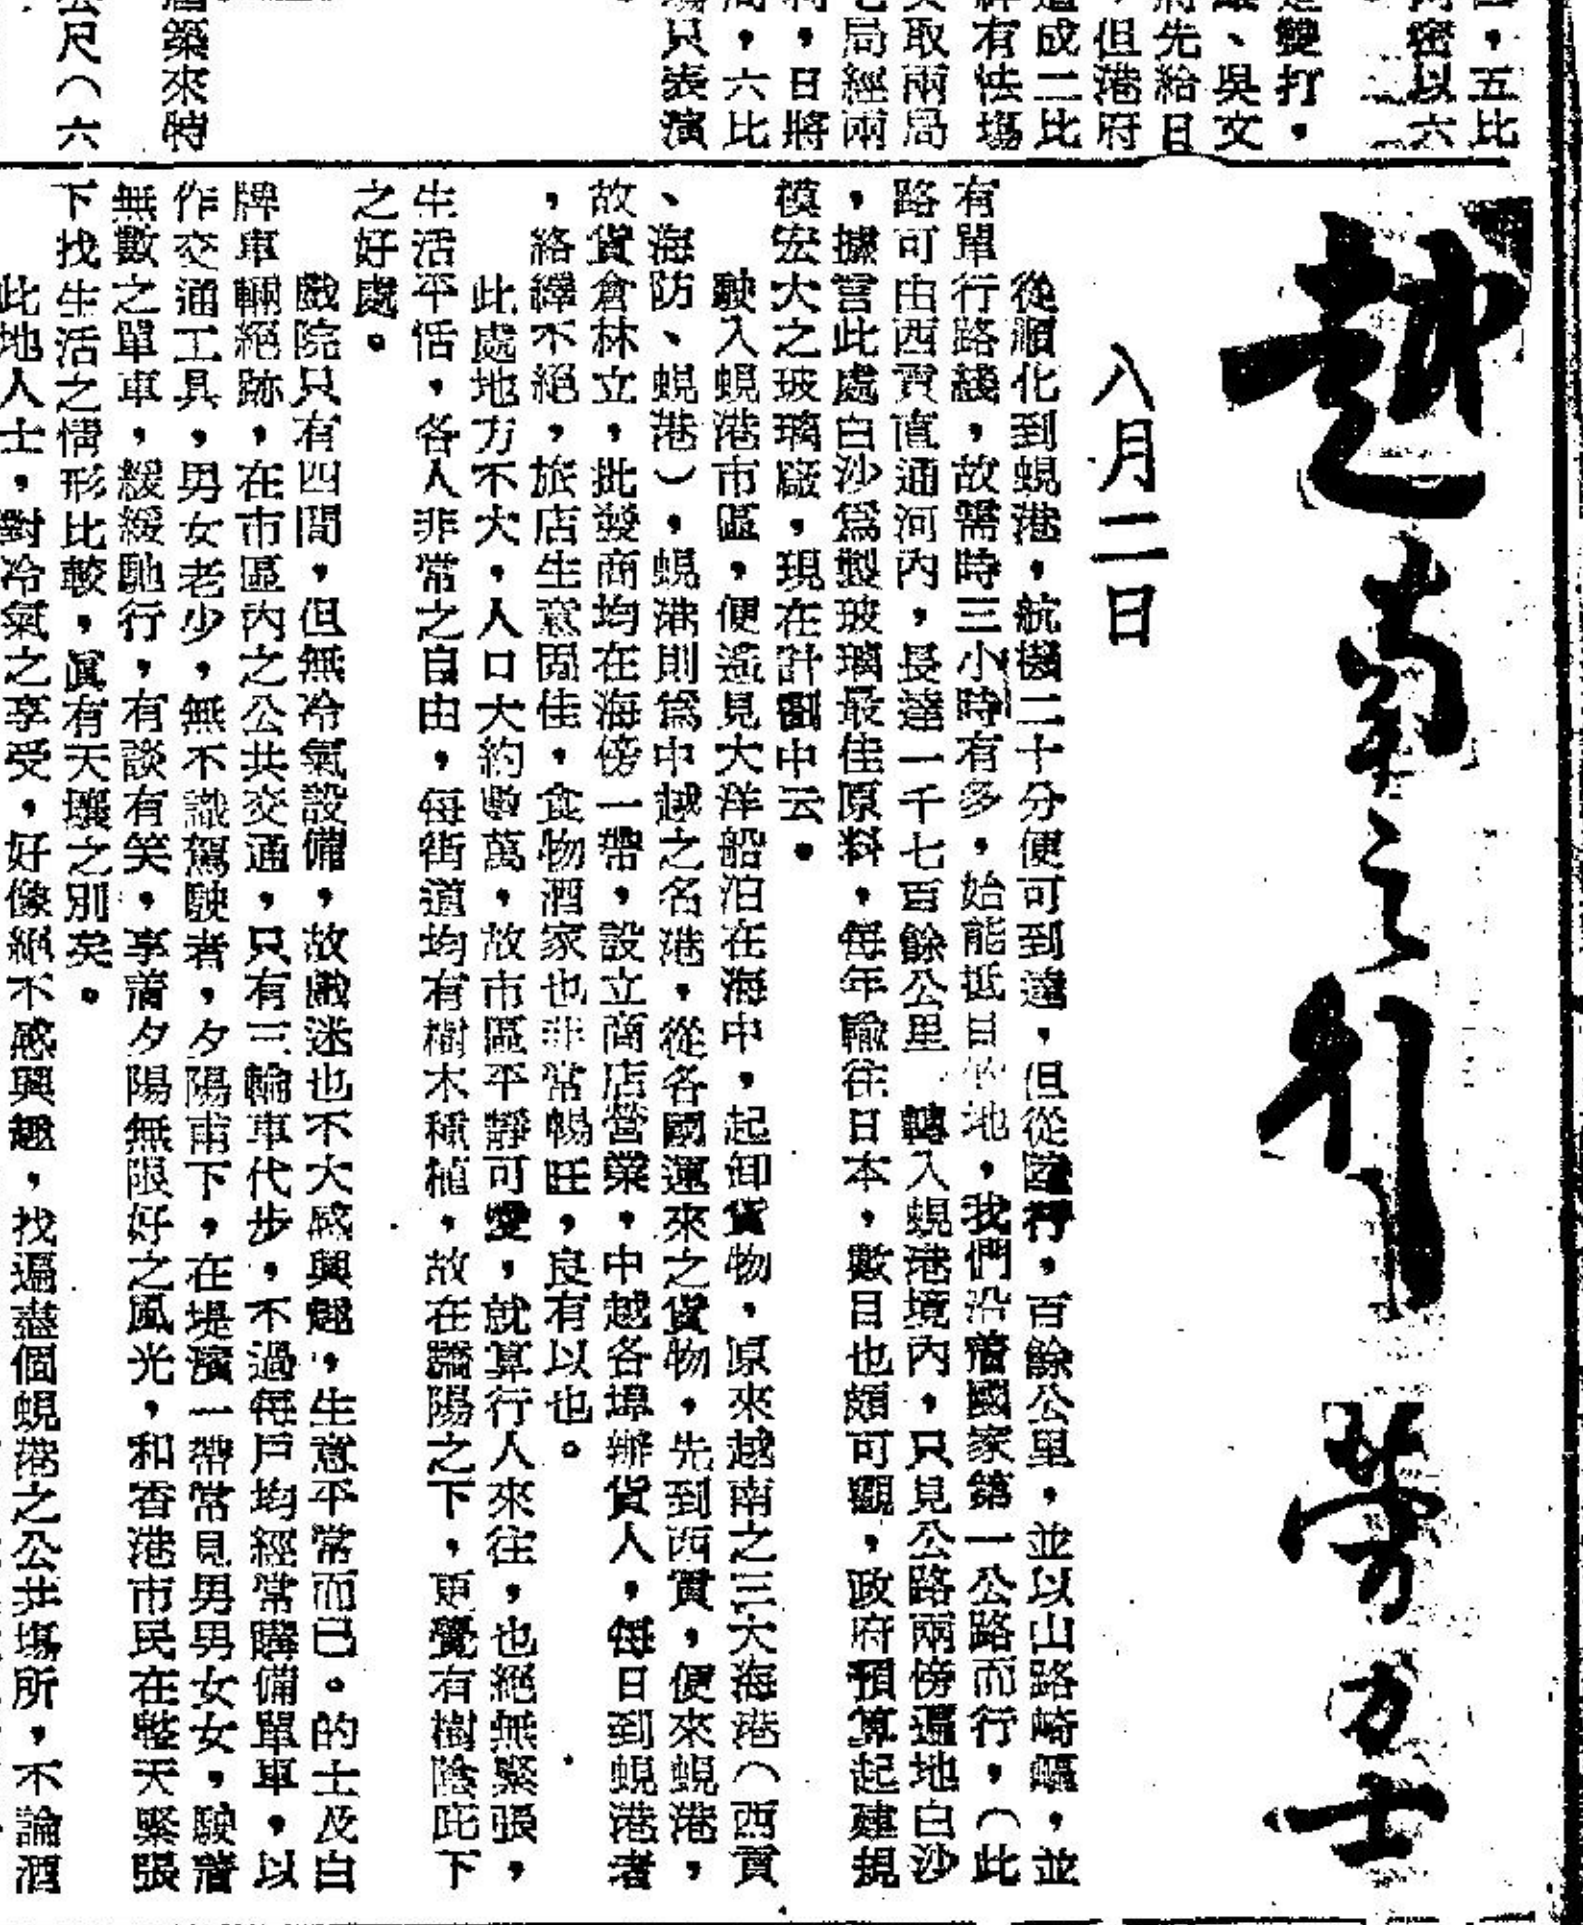 五比
密以六
雙打，
、吳文
先給日
但港府
成二比
有怯場
取兩局
局經兩
，日將
，六比
只表演
築來特
尺（六
越南之行 勞力士
八月二日
從順化到蜆港，航機二十分便可到達，但從陸行，百餘公里，並以山路崎嶇，並
有單行路綫，故需時三小時有多，始能抵目的地，我們沿着國家第一公路而行，（此
路可由西貢直通河內，長達一千七百餘公里 轉入蜆港境內，只見公路兩傍遍地白沙
，據言此處白沙爲製玻璃最佳原料，每年輸往日本，數目也頗可觀，政府預算起建規
模宏大之玻璃廠，現在計劃中云。
駛入蜆港市區，便遙見大洋船泊在海中，起卸貨物，原來越南之三大海港（西貢
、海防、蜆港），蜆港則爲中越之名港，從各國運來之貨物，先到西貢，便來蜆港，
故貨倉林立，批發商均在海傍一帶，設立商店營業，中越各埠辦貨人，每日到蜆港者
，絡繹不絕，旅店生意固佳，食物酒家也非常暢旺，良有以也。
此處地方不大，人口大約數萬，故市區平靜可愛，就算行人來往，也絕無緊張，
生活平恬，各人非常之自由，每街道均有樹木種植，故在驕陽之下，更覺有樹陰庇下
之好處。
戲院只有四間，但無冷氣設備，故戲迷也不大感興趣，生意平常而已。的士及白
牌車輛絕跡，在市區內之公共交通，只有三輪車代步，不過每戶均經常購備單車，以
作交通工具，男女老少，無不識駕駛者，夕陽甫下，在堤濱一帶常見男男女女，駛着
無數之單車，緩緩馳行，有談有笑，享着夕陽無限好之風光，和香港市民在整天緊張
下找生活之情形比較，眞有天壤之別矣。
此地人士，對冷氣之享受，好像絕不感興趣，找遍盡個蜆港之公共塲所，不論酒